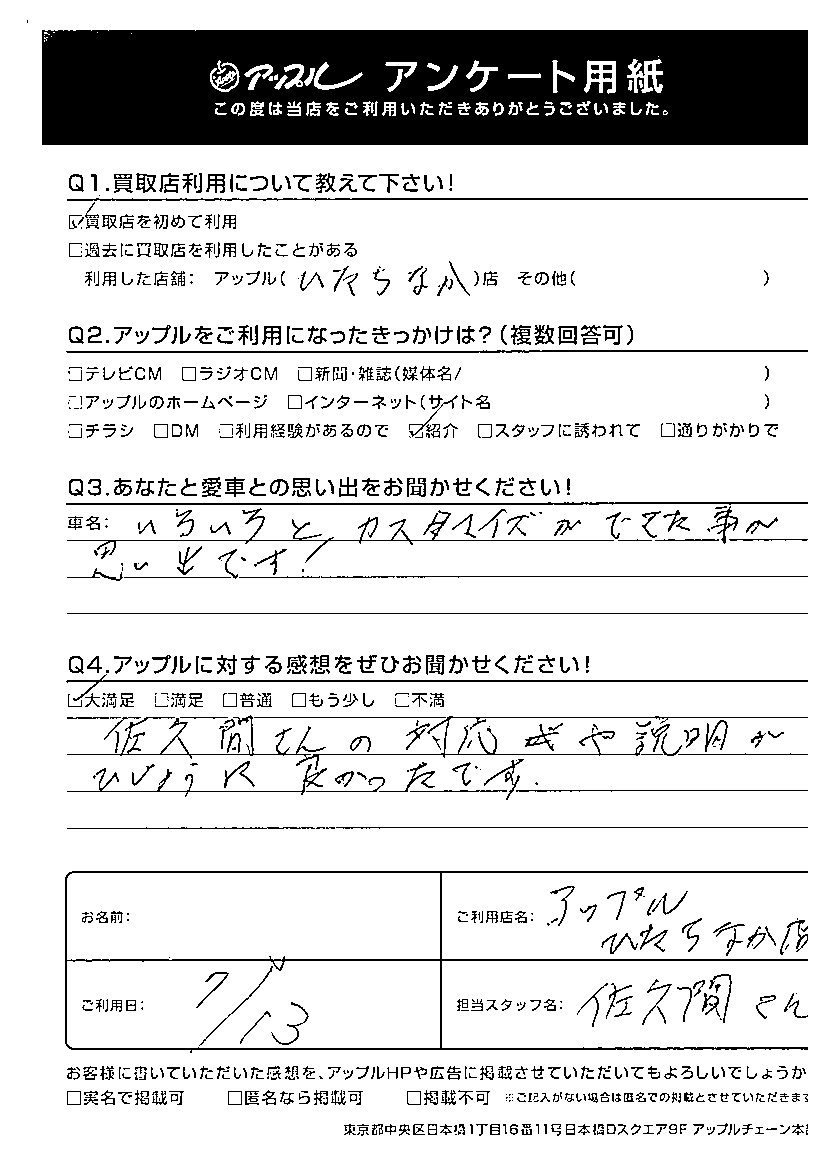 アップル アンケート用紙
この度は当店をご利用いただきありがとうございました。
Q1.買取店利用について教えて下さい!
☑買取店を初めて利用
□過去に買取店を利用したことがある
利用した店舗: アップル(ひたちなか)店 その他( )
Q2.アップルをご利用になったきっかけは?(複数回答可)
□テレビCM □ラジオCM □新聞・雑誌(媒体名/ )
□アップルのホームページ □インターネット(サイト名 )
□チラシ □DM □利用経験があるので ☑紹介 □スタッフに誘われて □通りがかりで
Q3.あなたと愛車との思い出をお聞かせください!
車名: いろいろと カスタマイズが できた事が
思い出です!
Q4.アップルに対する感想をぜひお聞かせください!
☑大満足 □満足 □普通 □もう少し □不満
佐久間さんの対応 や説明が
ひじょうに良かったです.
お名前:
ご利用店名: アップル
ひたちなか店
ご利用日: 7/13
担当スタッフ名: 佐久間さん
お客様に書いていただいた感想を、アップルHPや広告に掲載させていただいてもよろしいでしょうか
□実名で掲載可 □匿名なら掲載可 □掲載不可 ※ご記入がない場合は匿名での掲載とさせていただきます
東京都中央区日本橋1丁目16番11号日本橋Dスクエア9F アップルチェーン本